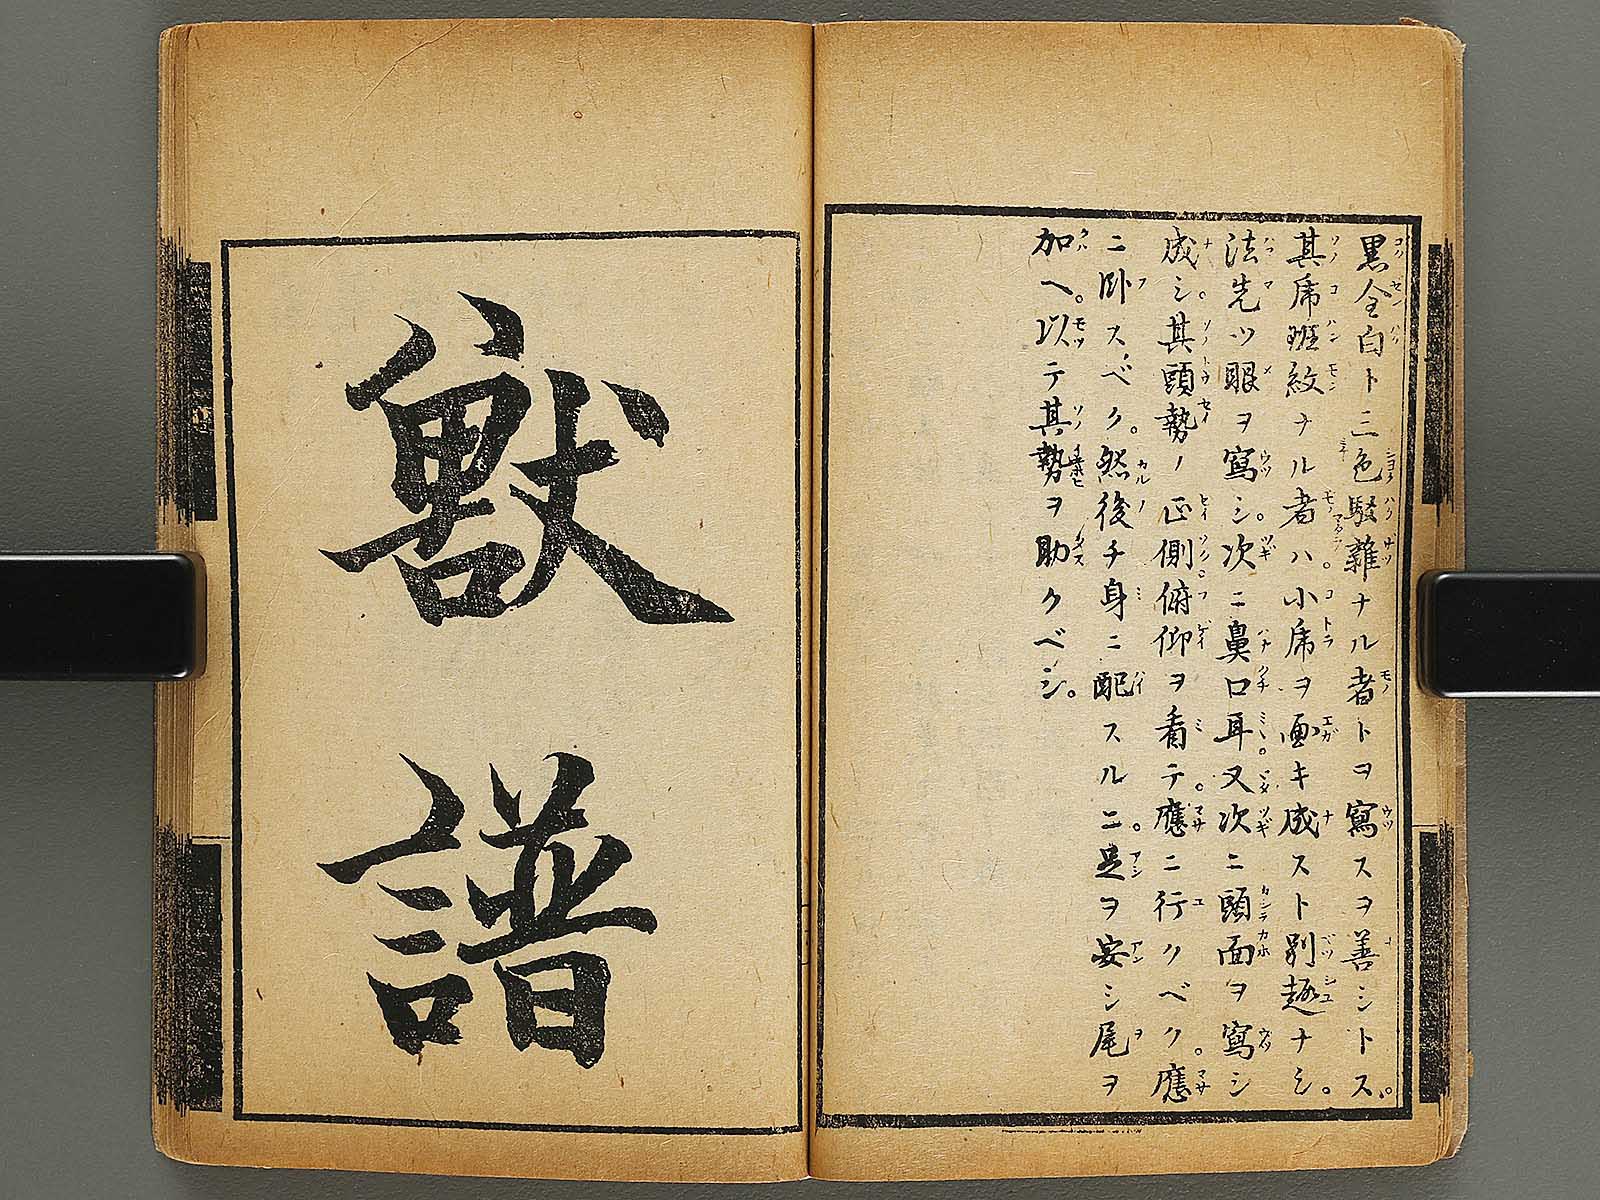 黒全白ト三色駁雜ナル者トヲ寫スヲ善シトス。
其虎斑紋ナル者ハ。小虎ヲ画キ成スト別趣ナシ。
法先ツ眼ヲ寫シ。次ニ鼻口耳。又次ニ頭面ヲ寫シ
成シ。其頭勢ノ正側俯仰ヲ看テ。應ニ行クベク。應
ニ卧スベク。然後チ身ニ配スルニ。足ヲ安シ尾ヲ
加ヘ。以テ其勢ヲ助クベシ。
獸譜